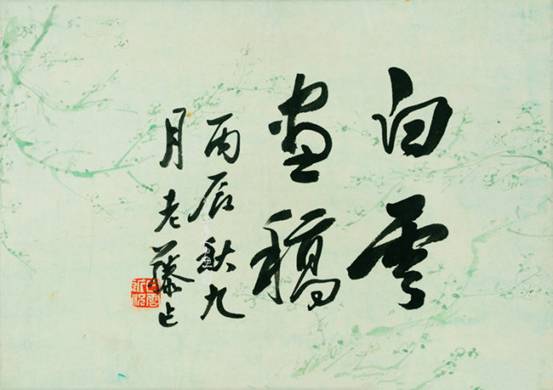 白雲
畫稿
丙辰秋九
月老藤占